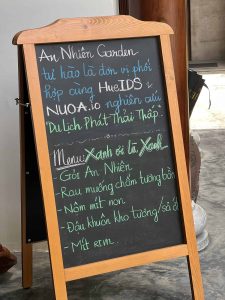 An Nhiên Garden
tự hào là đơn vị phối
hợp cùng HueIDS
NUOA.io nghiên cứu
"Du lịch Phát Thải Thấp"
Menu: Xanh ơi là Xanh
- Gỏi An Nhiên
- Rau muống chấm tương bần
- Nộm mít non
- Đậu khuôn kho tương/sả ớt
- Mít